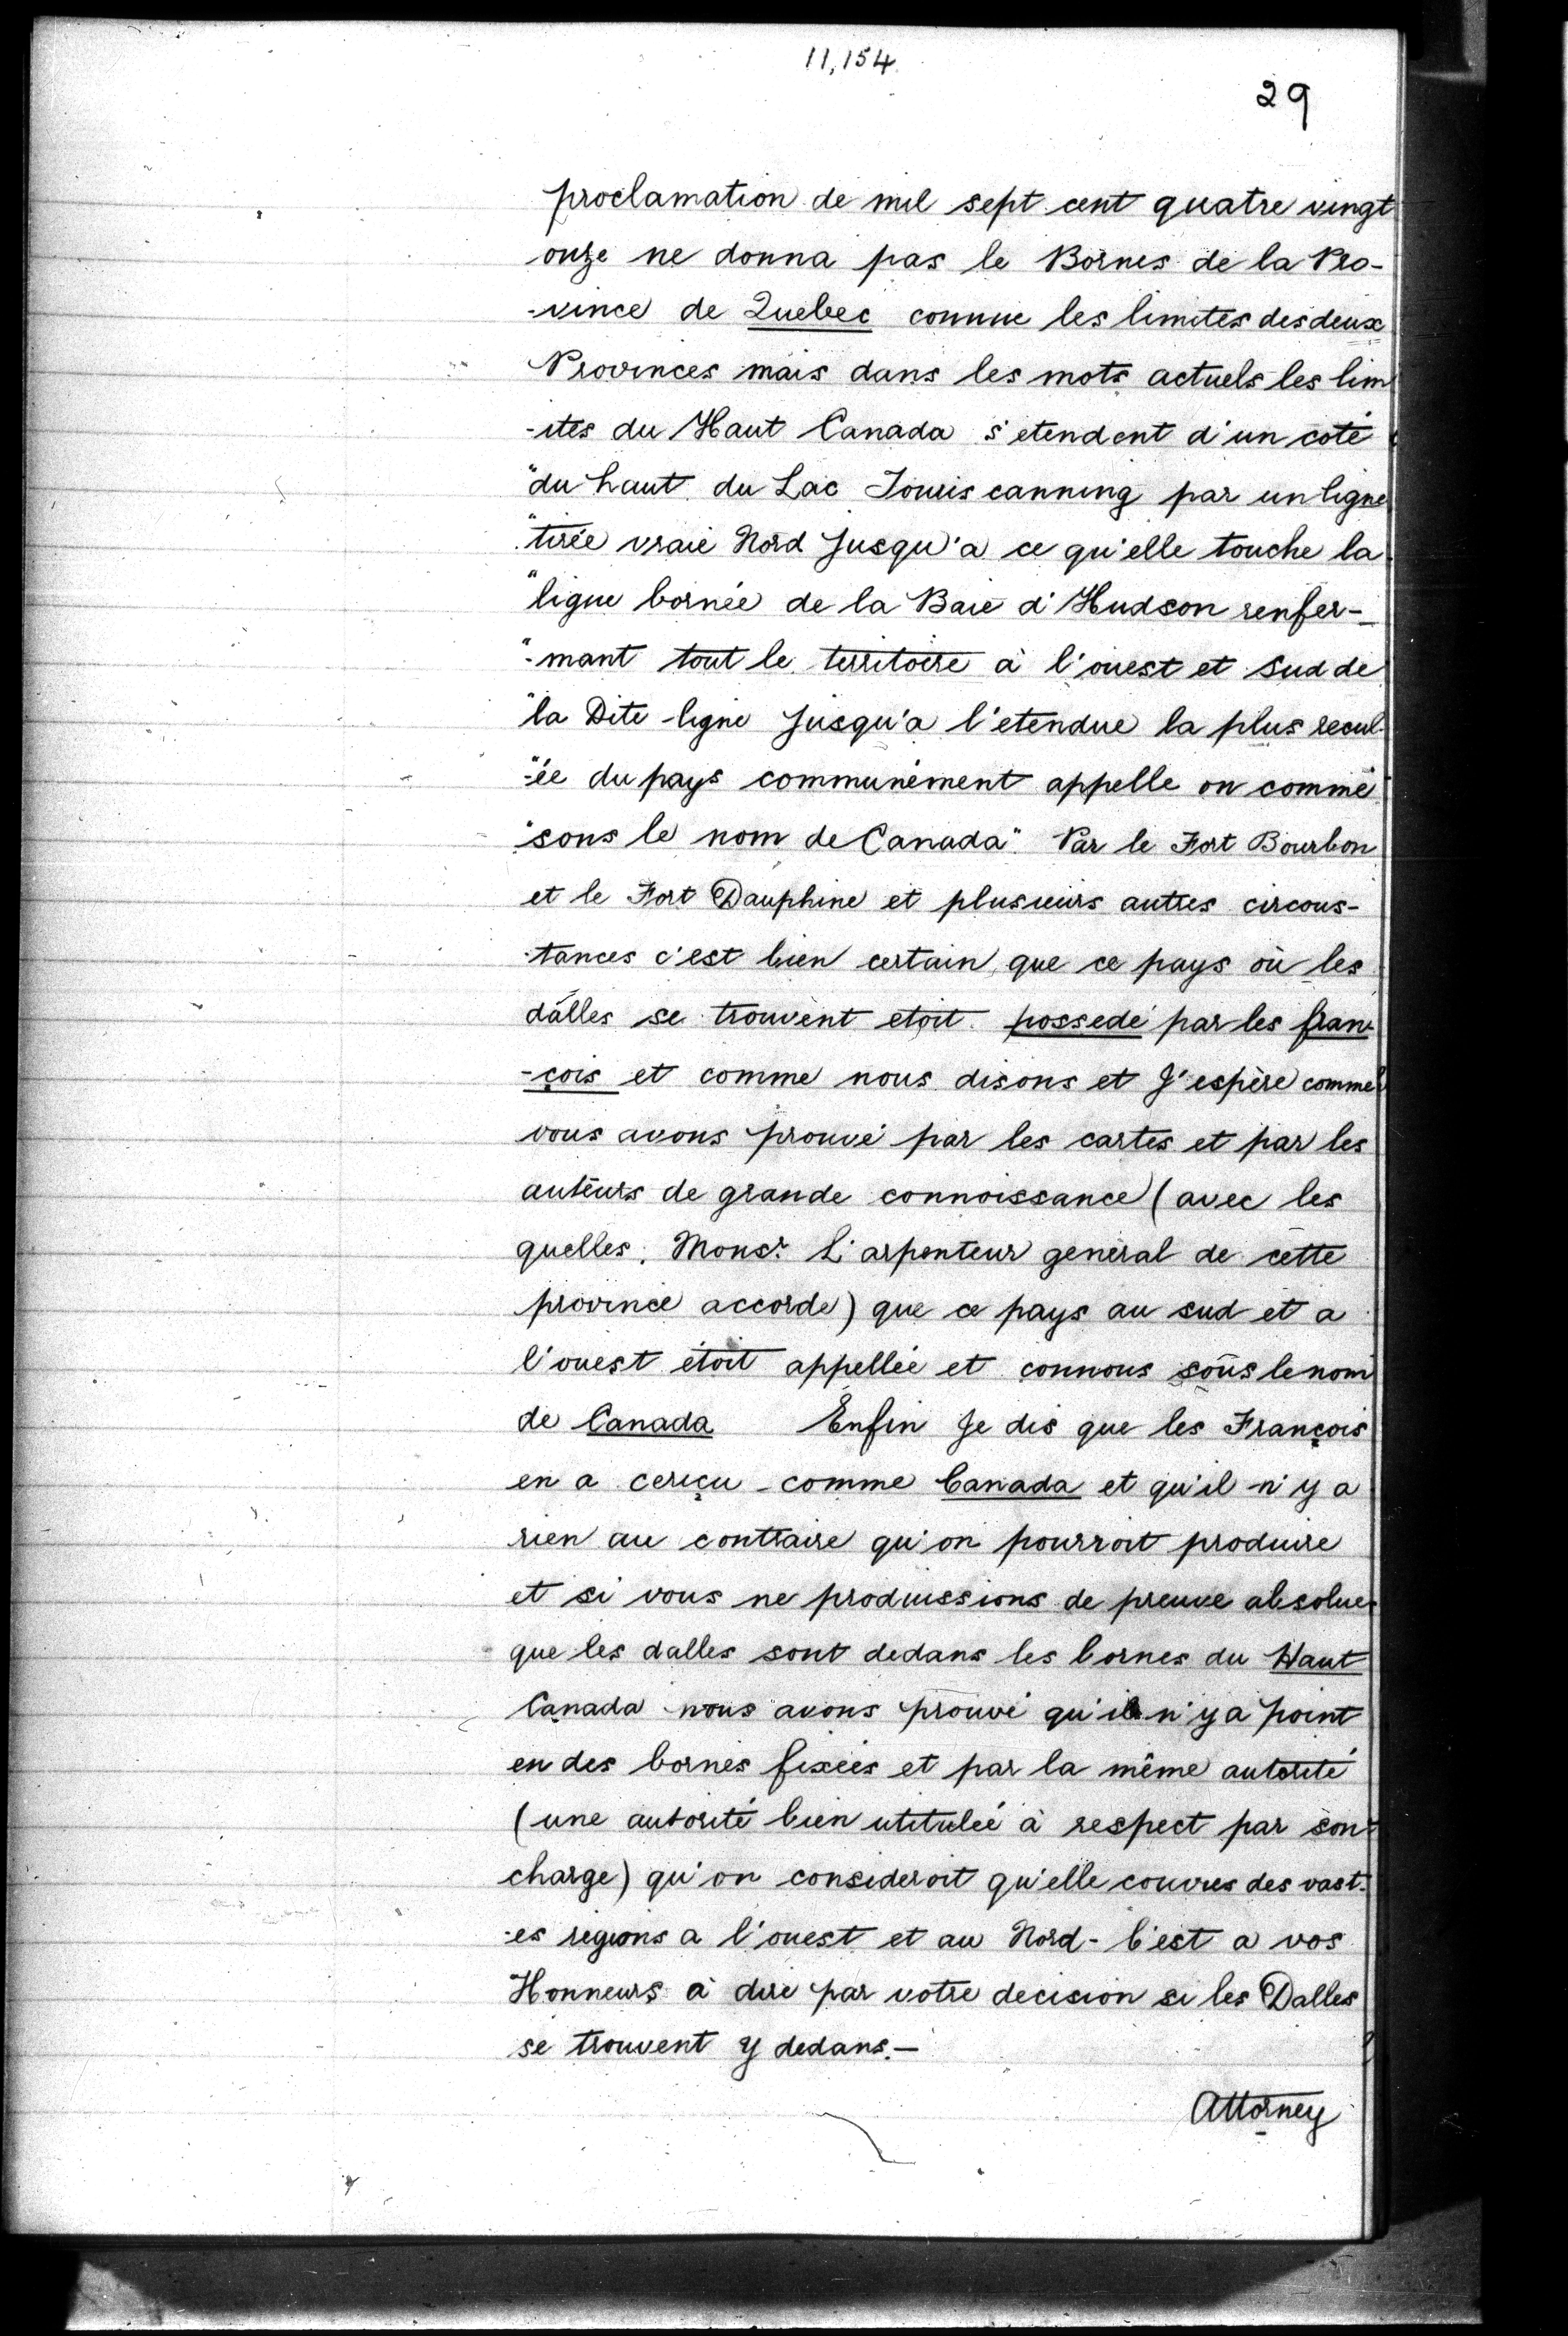 11,154
29
proclamation de mil sept cent quatre vingt
onze ne donna pas le Bornes de la Pro-
-vince de Quebec comme les limites des deux
Provinces mais dans les mots actuels les lim
-ites du Haut Canada s'etendent d'un coté
"du haut du Lac Tomiscanning par un ligne
"tirée vraie Nord Jusqu'a ce qu'elle touche la
"ligne bornée de la Baie d'Hudson renfer-
"-mant tout le territoire à l'ouest et Sud de
"la Dite ligne Jusqu'a l'etendue la plus recul-
"-ée du pays communément appelle on comme
"sons le nom de Canada" Par le Fort Bourbon
et le Fort Dauphine et plusieurs autres circons-
-tances c'est bien certain, que ce pays où les
dâlles se trouvent etoit possedé par les fran-
-çois et comme nous disons et J'espère comme
vous avons prouvé par les cartes et par les
auteurs de grande connoissance (avec les
quelles, Monsr. L'arpenteur general de cette
province accorde) que ce pays au sud et a
l'ouest étoit appellée et connous sous le nom
de Canada Enfin Je dis que les François
en a cereçu - comme Canada et qu'il n'y a
rien au contraire qu'on pourroit produire
et si vous ne produissions de preuve absolue
que les dalles sont dedans les bornes du Haut
Canada nous avons prouvé qu'il n'y a point
en des bornes fixées et par la même autorité
(une autorité bien utitulée à respect par son
charge) qu'on consideroit qu'elle couvres des vast-
-es regions a l'ouest et au Nord - C'est a vos
Honneurs à dire par votre decision si les Dalles
se trouvent y dedans.—
Attorney